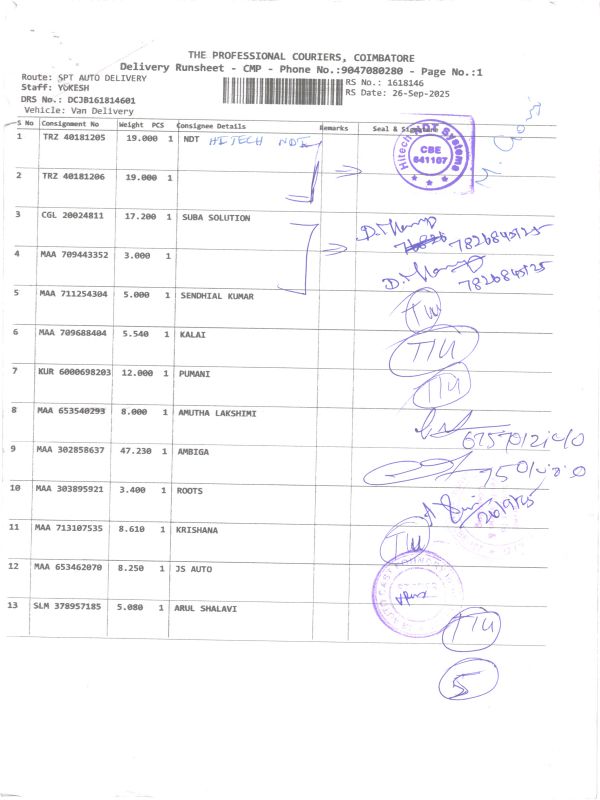 THE PROFESSIONAL COURIERS, COIMBATORE
Delivery Runsheet - CMP - Phone No.:9047080280 - Page No.:1
Route: SPT AUTO DELIVERY
RS No.: 1618146
Staff: YOKESH
RS Date: 26-Sep-2025
DRS No.: DCJB161814601
Vehicle: Van Delivery
S No Consignment No Weight PCS Consignee Details Remarks Seal & Signature
1 TRZ 40181205 19.000 1 NDT HITECH NDT
Hitech NDT Systems
CBE
641107
2 TRZ 40181206 19.000 1
3 CGL 20024811 17.200 1 SUBA SOLUTION
7826845125
4 MAA 709443352 3.000 1
7826845125
5 MAA 711254304 5.000 1 SENDHIAL KUMAR
T/U
6 MAA 709688404 5.540 1 KALAI T/U
7 KUR 6000698203 12.000 1 PUMANI T/U
8 MAA 653540293 8.000 1 AMUTHA LAKSHIMI
9 MAA 302858637 47.230 1 AMBIGA
10 MAA 303895921 3.400 1 ROOTS
26/9/25
11 MAA 713107535 8.610 1 KRISHANA T/U
12 MAA 653462070 8.250 1 JS AUTO
13 SLM 378957185 5.080 1 ARUL SHALAVI
T/U
5